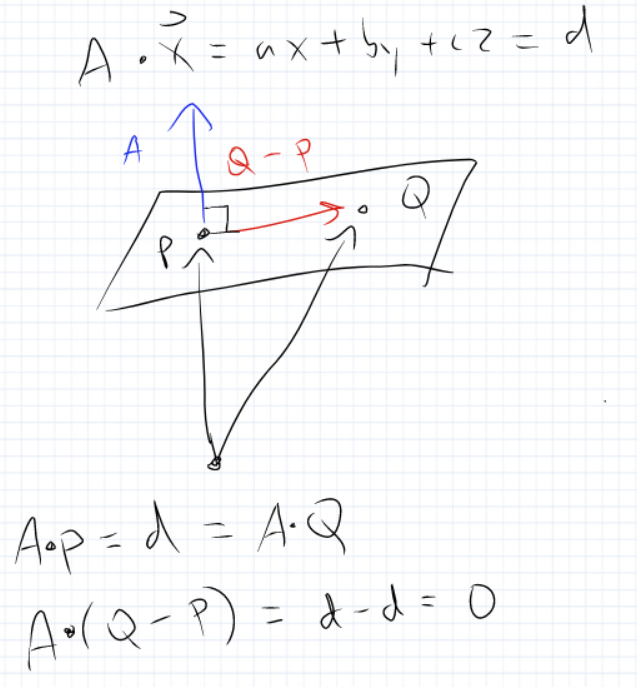 A · x⃗ = ax + by + cz = d
A
Q - P
Q
P
A·P = d = A·Q
A·(Q - P) = d - d = 0